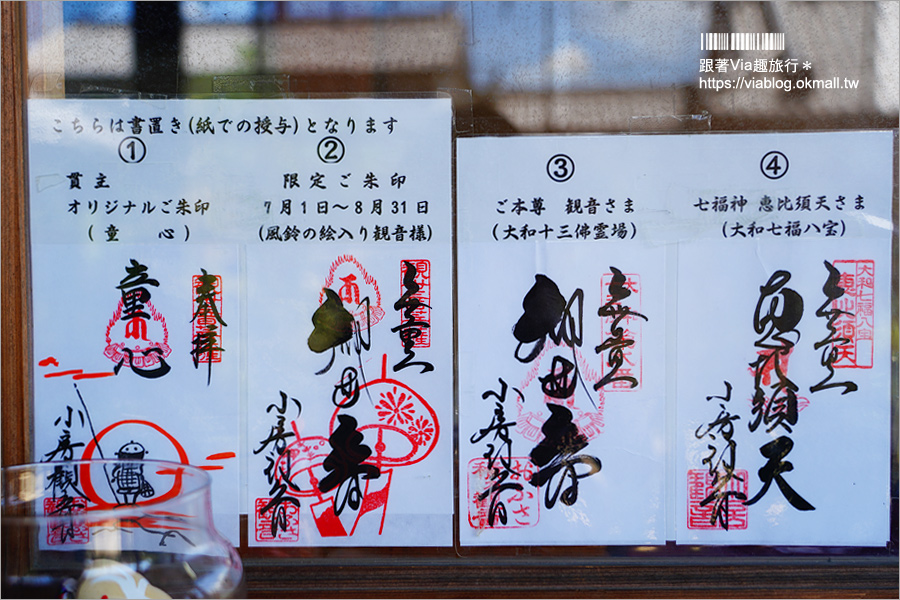 跟著Via趣旅行＊
https://viablog.okmall.tw
こちらは書置き(紙での授与)となります
①
貫主
オリジナルご朱印
(童　心)
童心
奉拝
小房観音
②
限定ご朱印
7月1日～8月31日
(風鈴の絵入り観音様)
小房観音
③
ご本尊　観音さま
(大和十三佛霊場)
小房観音
おふさ
④
七福神　恵比須天さま
(大和七福八宝)
大和七福八宝
恵比須天
小房観音